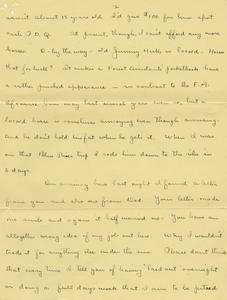 2
wasn't about 15 years old I'd give $100 for him spot
cash P.D.Q. At present, though, I can't afford any more
horses. O - by the way - old Jimmy Hicks is loose. How's
that for luck? It makes a Forest Assistant's pocketbook have
a rather pinched appearance - in contrast to the F.A.
himself you may last several years more so, but a
loose horse is sometimes annoying even though amusing
and he don't hold his fat when he gets it. When I was
on that Blue River trip I rode him down to the ribs in
3 days.
On arriving here last night I found a letter
from you and also one from Dad. Your letter made
me smile and again it half worried me. You have an
altogether wrong idea of my job out here. Why I wouldn't
trade it for anything else under the sun. Please don't think
that every time I tell you of having laid out overnight
or doing a full day's work that I aim to be pitied